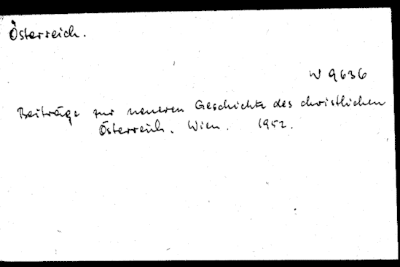 Österreich.
W 9636
Beiträge zur neueren Geschichte des christlichen
Österreich. Wien. 1952.